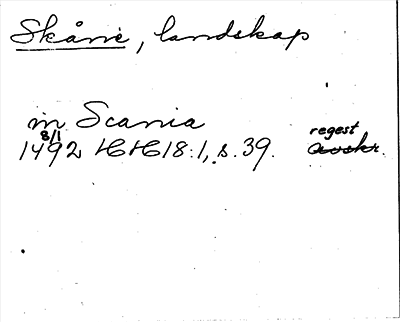 Skåne, landskap
in Scania
8/1 regest
1492 HH 18:1, s. 39. avskr.